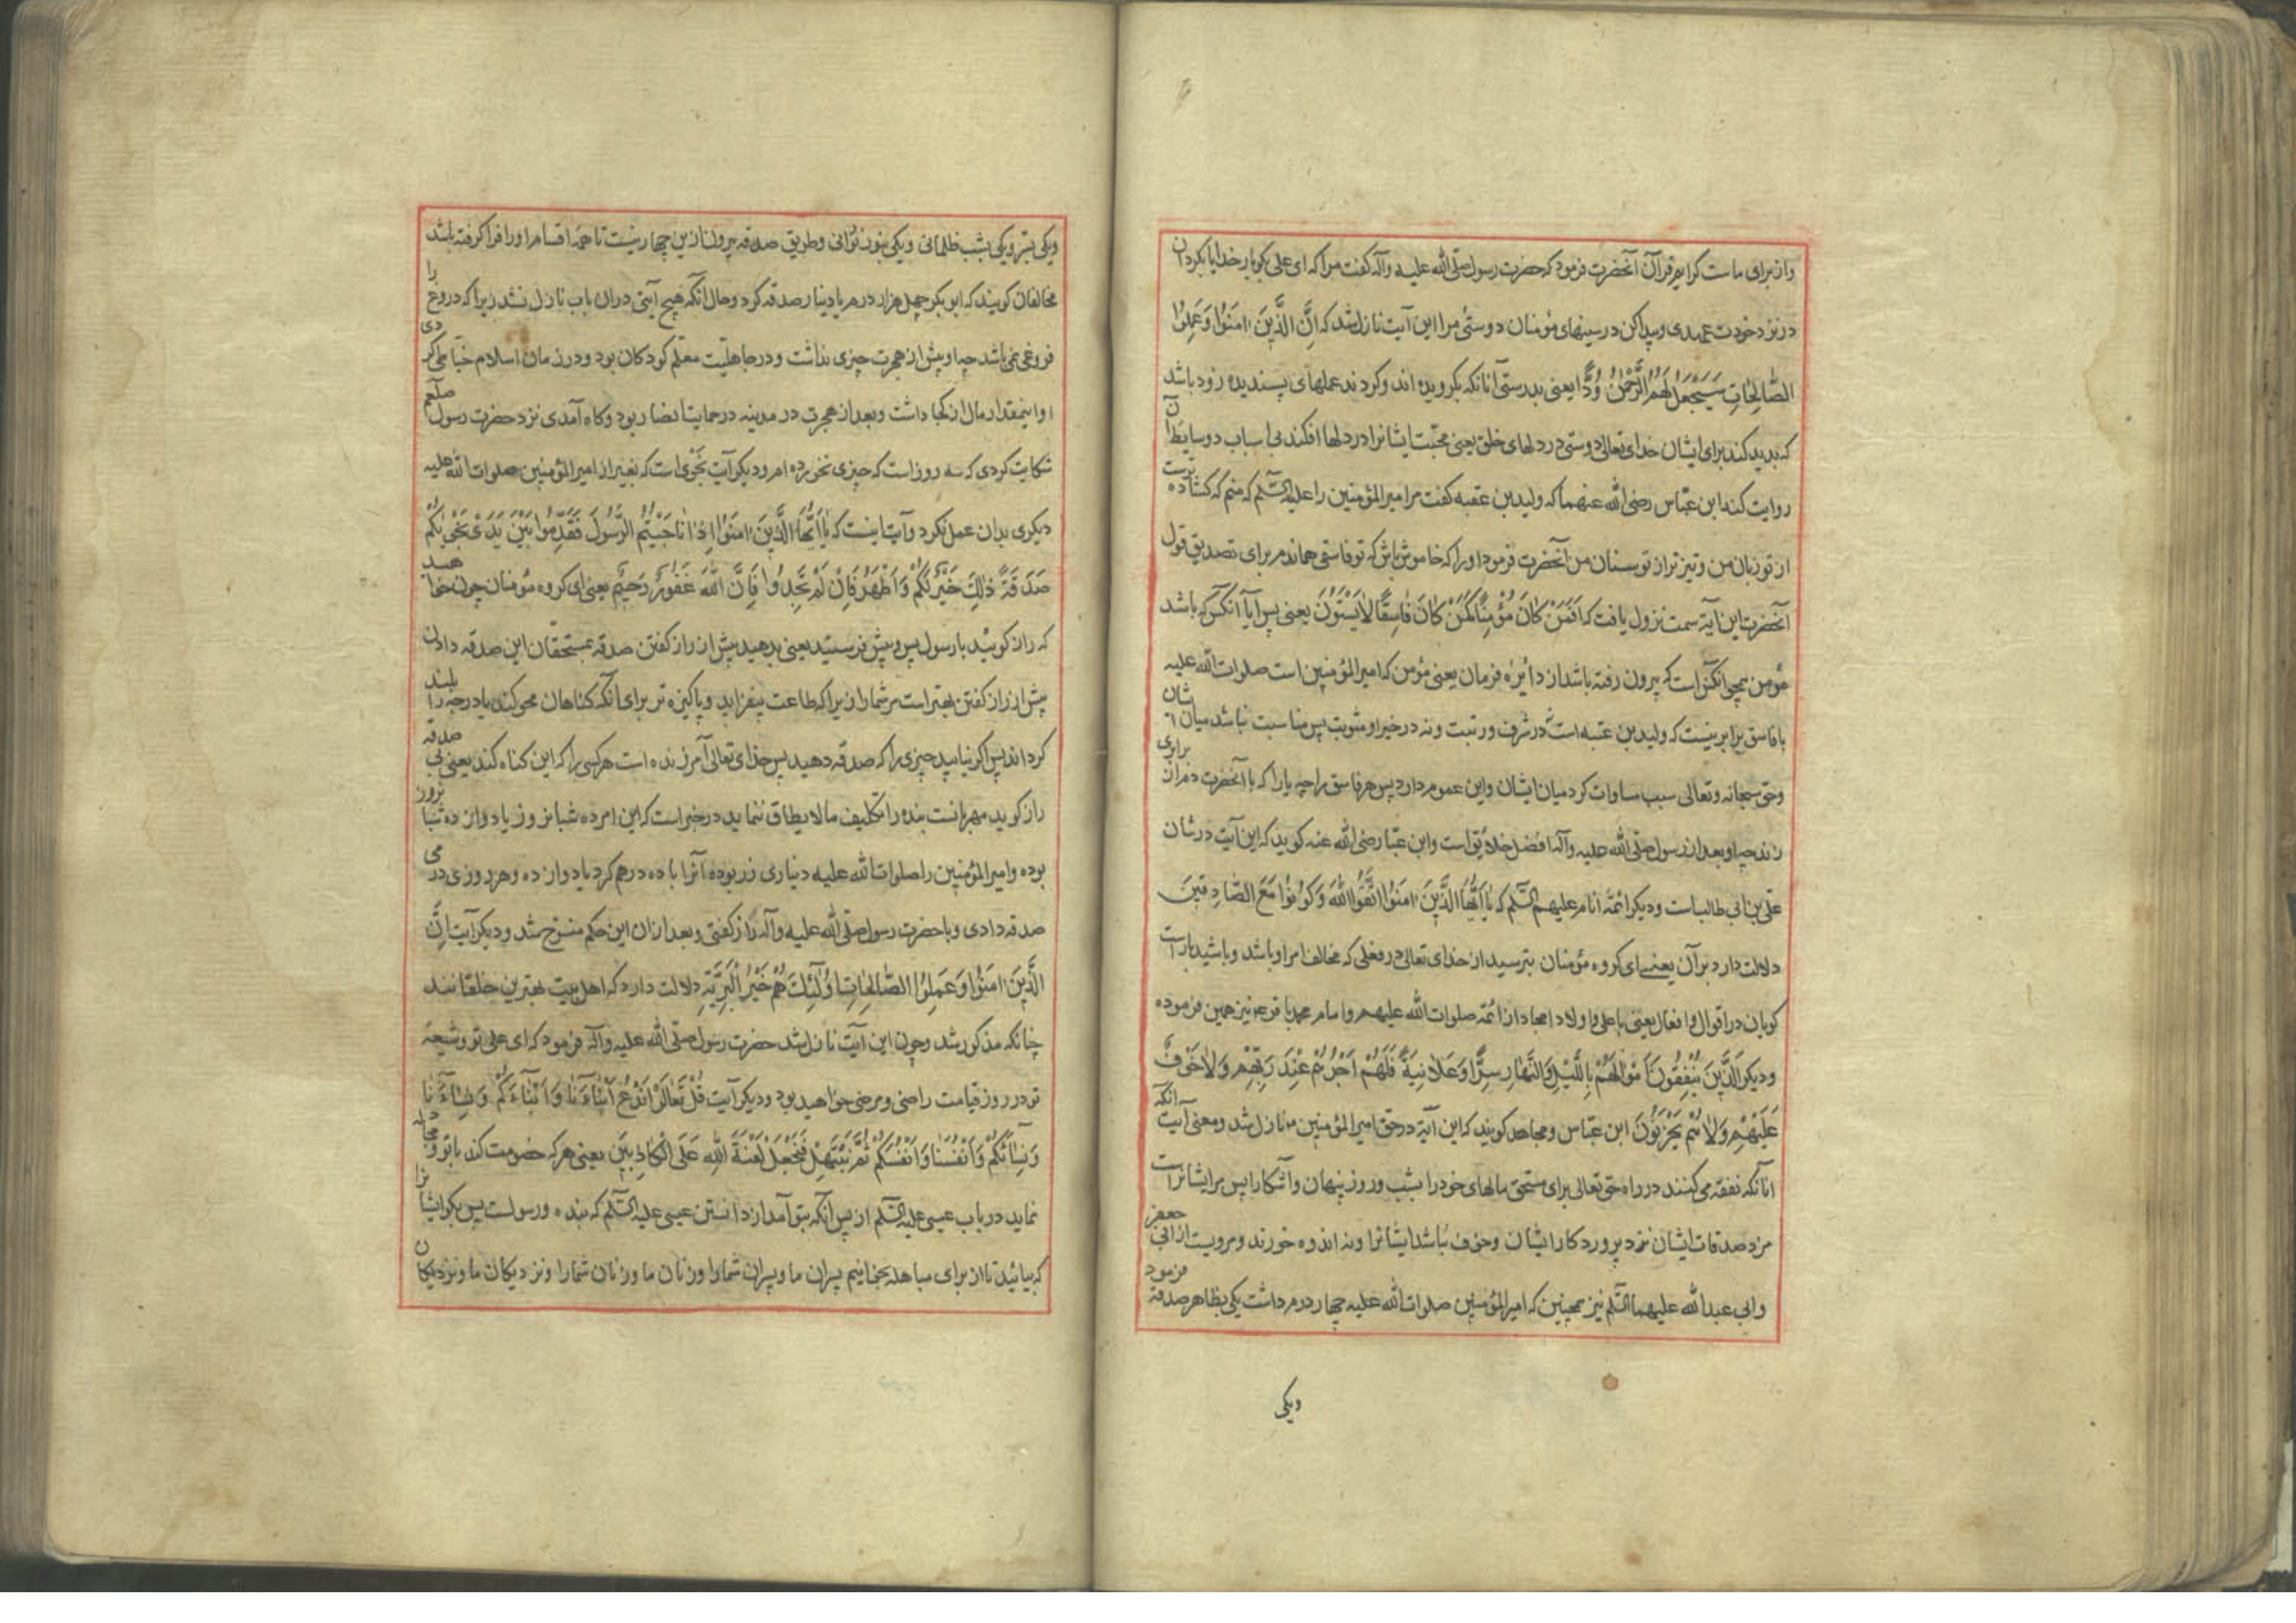 واز برای ماست کرایم قرآن آنحضرت فرمود که حضرت رسول صلّی الله علیه وآله کفت مرا که ای علی بکو بار خدایا بکردان
در نزد خودت عهدی و پیدا کن در سینهای مؤمنان دوستی مرا این آیت نازل شد که اِنَّ الَّذینَ اٰمَنُوا وَعَمِلُوا
الصّٰالِحٰاتِ سَیَجْعَلُ لَهُمُ الرَّحْمٰنُ وُدًّا یعنی بدرستی آنانکه بکرویده اند وکردند عملهای پسندیده زود باشد
که بدید کند برای ایشان خدای تعالی دوستی در دلهای خلق یعنی محبّت ایشانرا در دلها افکند بی اسباب و وسایط آن
روایت کند ابن عبّاس رضی الله عنهما که ولید بن عقبه کفت مر امیر المؤمنین را علیه السّلم که منم که کشاده ترست
از تو زبان من و تیز تر از تو سنان من آنحضرت فرمود او را که خاموش باش که تو فاسقی هماندم برای تصدیق قول
آنحضرت این آیة سمت نزول یافت که اَفَمَنْ کٰانَ مُؤْمِنًا کَمَنْ کٰانَ فٰاسِقًا لاٰ یَسْتَوُنَ یعنی پس آیا آنکس که باشد
مؤمن همچو آنکس است که بیرون رفته باشد از دائره فرمان یعنی مؤمن که امیر المؤمنین است صلوات الله علیه
با فاسق برابر نیست که ولید بن عتبه است نه در شرف و رتبت ونه در خیر و مثوبت پس مناسبت نباشد میان ایشان
وحق سبحانه وتعالی سبب مساوات کرد میان ایشان واین عموم دارد پس هر فاسق را چه یارا که با آنحضرت دم از برابری
زند چه او بعد از رسول صلّی الله علیه وآله افضل خلائق است وابن عبّاس رضی الله عنه کوید که این آیت در شان
علی بن ابی طالب است ودیکر ائمّه انام علیهم السّلم که یٰا اَیُّهَا الَّذینَ اٰمَنُوا اتَّقُوا اللّٰهَ وَکُونُوا مَعَ الصّٰادِقینَ
دلالت دارد بر آن یعنے ای کروه مؤمنان بترسید از خدای تعالی در فعلی که مخالف امر او باشد و باشید با راست
کویان در اقوال وافعال یعنی با علی و اولاد امجاد از ائمّه صلوات الله علیهم وامام محمد باقر ع نیز همین فرموده
ودیکر اَلَّذینَ یُنْفِقُونَ اَمْوٰالَهُمْ بِاللَّیْلِ وَالنَّهٰارِ سِرًّا وَعَلاٰنِیَةً فَلَهُمْ اَجْرُهُمْ عِنْدَ رَبِّهِمْ وَلاٰ خَوْفٌ
عَلَیْهِمْ وَلاٰ هُمْ یَحْزَنُونَ ابن عبّاس ومجاهد کویند که این آیة در حق امیر المؤمنین ع نازل شد ومعنی آیت آنکه
آنانکه نفقه می کنند در راه حق تعالی برای مستحق مالهای خود را بشب وروز پنهان وآشکارا پس مر ایشانراست
مزد صدقات ایشان نزد پروردکار ایشان وخوف نباشد ایشانرا ونه اندوه خورند ومرویست از ابی جعفر
وابی عبد الله علیهما السّلم نیز همچنین که امیر المؤمنین صلوات الله علیه چهار درم داشت یکی بظاهر صدقه فرمود
ویکی
ویکی بسرّ ویکی بشب ظلمانی ویکی بروز نورانی وطریق صدقه بیرون از ین چهار نیست تا همه اقسام او را فرا کرفته باشد
مخالفان کویند که ابو بکر چهل هزار درم یا دینار صدقه کرد وحال آنکه هیچ آیتی در ان باب نازل نشد زیرا که دروغ را
فروغی نمی باشد چه او پیش از هجرت چیزی نداشت ودر جاهلیّت معلّم کودکان بود ودر زمان اسلام خیّاطی کردی
او اینمقدار مال از کجا داشت وبعد از هجرت در مدینه در حمایت انصار بود وکاه آمدی نزد حضرت رسول صلّعم
شکایت کردی که سه روز است که چیزی نخورده ام ودیکر آیت نَجْوٰی است که بغیر از امیر المؤمنین صلوات الله علیه
دیکری بدان عمل نکرد وآیت اینست که یٰا اَیُّهَا الَّذینَ اٰمَنُوا اِذٰا نٰاجَیْتُمُ الرَّسُولَ فَقَدِّمُوا بَیْنَ یَدَیْ نَجْوٰیکُمْ
صَدَقَةً ذٰلِکَ خَیْرٌ لَکُمْ وَاَطْهَرُ فَاِنْ لَمْ تَجِدُوا فَاِنَّ اللّٰهَ غَفُورٌ رَحیمٌ یعنی ای کروه مؤمنان چون خواهید
که راز کوئید با رسول پس پیش فرستید یعنی بدهید پیش از راز کفتن صدقه بمستحقان این صدقه دادن
پیش از راز کفتن بهتر است مر شما را زیرا که طاعت بیفزاید و پاکیزه تر برای آنکه کناهان محو کند یا درجه را بلند
کرداند پس اکر نیابید چیزی را که صدقه دهید پس خدای تعالی آمرزنده است هر کسی را که این کناه کند یعنی بی صدقه
راز کوید مهربانست بنده را تکلیف مالا یطاق ننماید در خبر است که این امر ده شبانروز یا دوازده شبانروز
بوده وامیر المؤمنین را صلوات الله علیه دیناری زر بوده آنرا با ده درهم کرد یا دوازده وهر روزی درمی
صدقه دادی وبا حضرت رسول صلّی الله علیه وآله راز کفتی وبعد از ان این حکم منسوخ شد ودیکر آیت اِنَّ
الَّذینَ اٰمَنُوا وَعَمِلُوا الصّٰالِحٰاتِ اُولٰئِکَ هُمْ خَیْرُ الْبَرِیَّةِ دلالت دارد که اهل بیت بهترین خلقانند
چنانکه مذکور شد وچون این آیت نازل شد حضرت رسول صلّی الله علیه وآله فرمود که ای علی تو وشیعهٔ
تو در روز قیامت راضی ومرضی خواهید بود ودیکر آیت قُلْ تَعٰالَوْا نَدْعُ اَبْنٰاءَنٰا وَاَبْنٰاءَکُمْ وَنِسٰاءَنٰا
وَنِسٰائَکُمْ وَاَنْفُسَنٰا وَاَنْفُسَکُمْ ثُمَّ نَبْتَهِلْ فَنَجْعَلْ لَعْنَةَ اللّٰهِ عَلَی الْکٰاذِبینَ یعنی هر که خصومت کند با تو ومجادله
نماید در باب عیسی علیه السّلم از پس آنکه بتو آمد از دانستن عیسی علیه السّلم که بنده ورسولست پس بکو ایشانرا
که بیائید تا از برای مباهله بخوانیم پسران ما و پسران شما را وزنان ما وزنان شما را ونزدیکان ما ونزدیکان